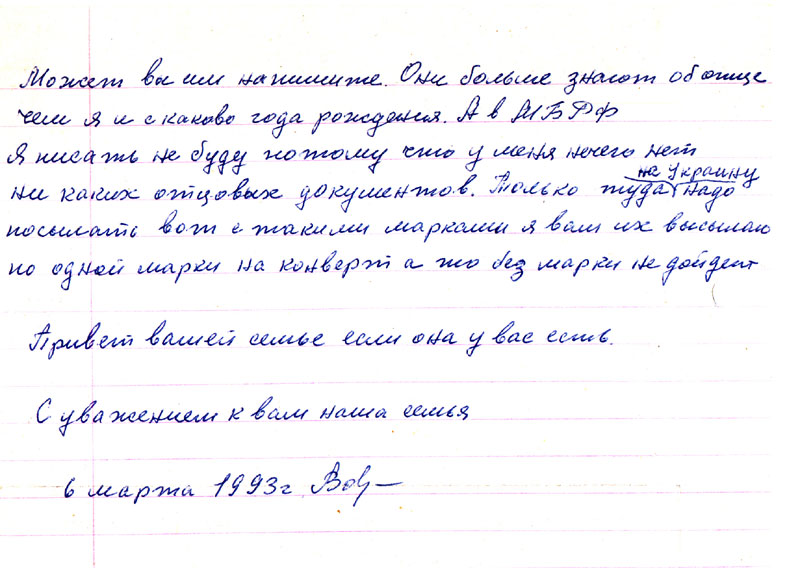 Может вы им напишите. Они больше знают об отце
чем я и с каково года рождения. А в МБРФ
Я писать не буду потому что у меня нечего нет
на Украину
ни каких отцовых документов. Только туда надо
посылать вот с такими марками я вам их высылаю
по одной марки на конверт а то без марки не дойдет
Привет вашей семье если она у вас есть.
С уважением к вам наша семья
6 марта 1993г